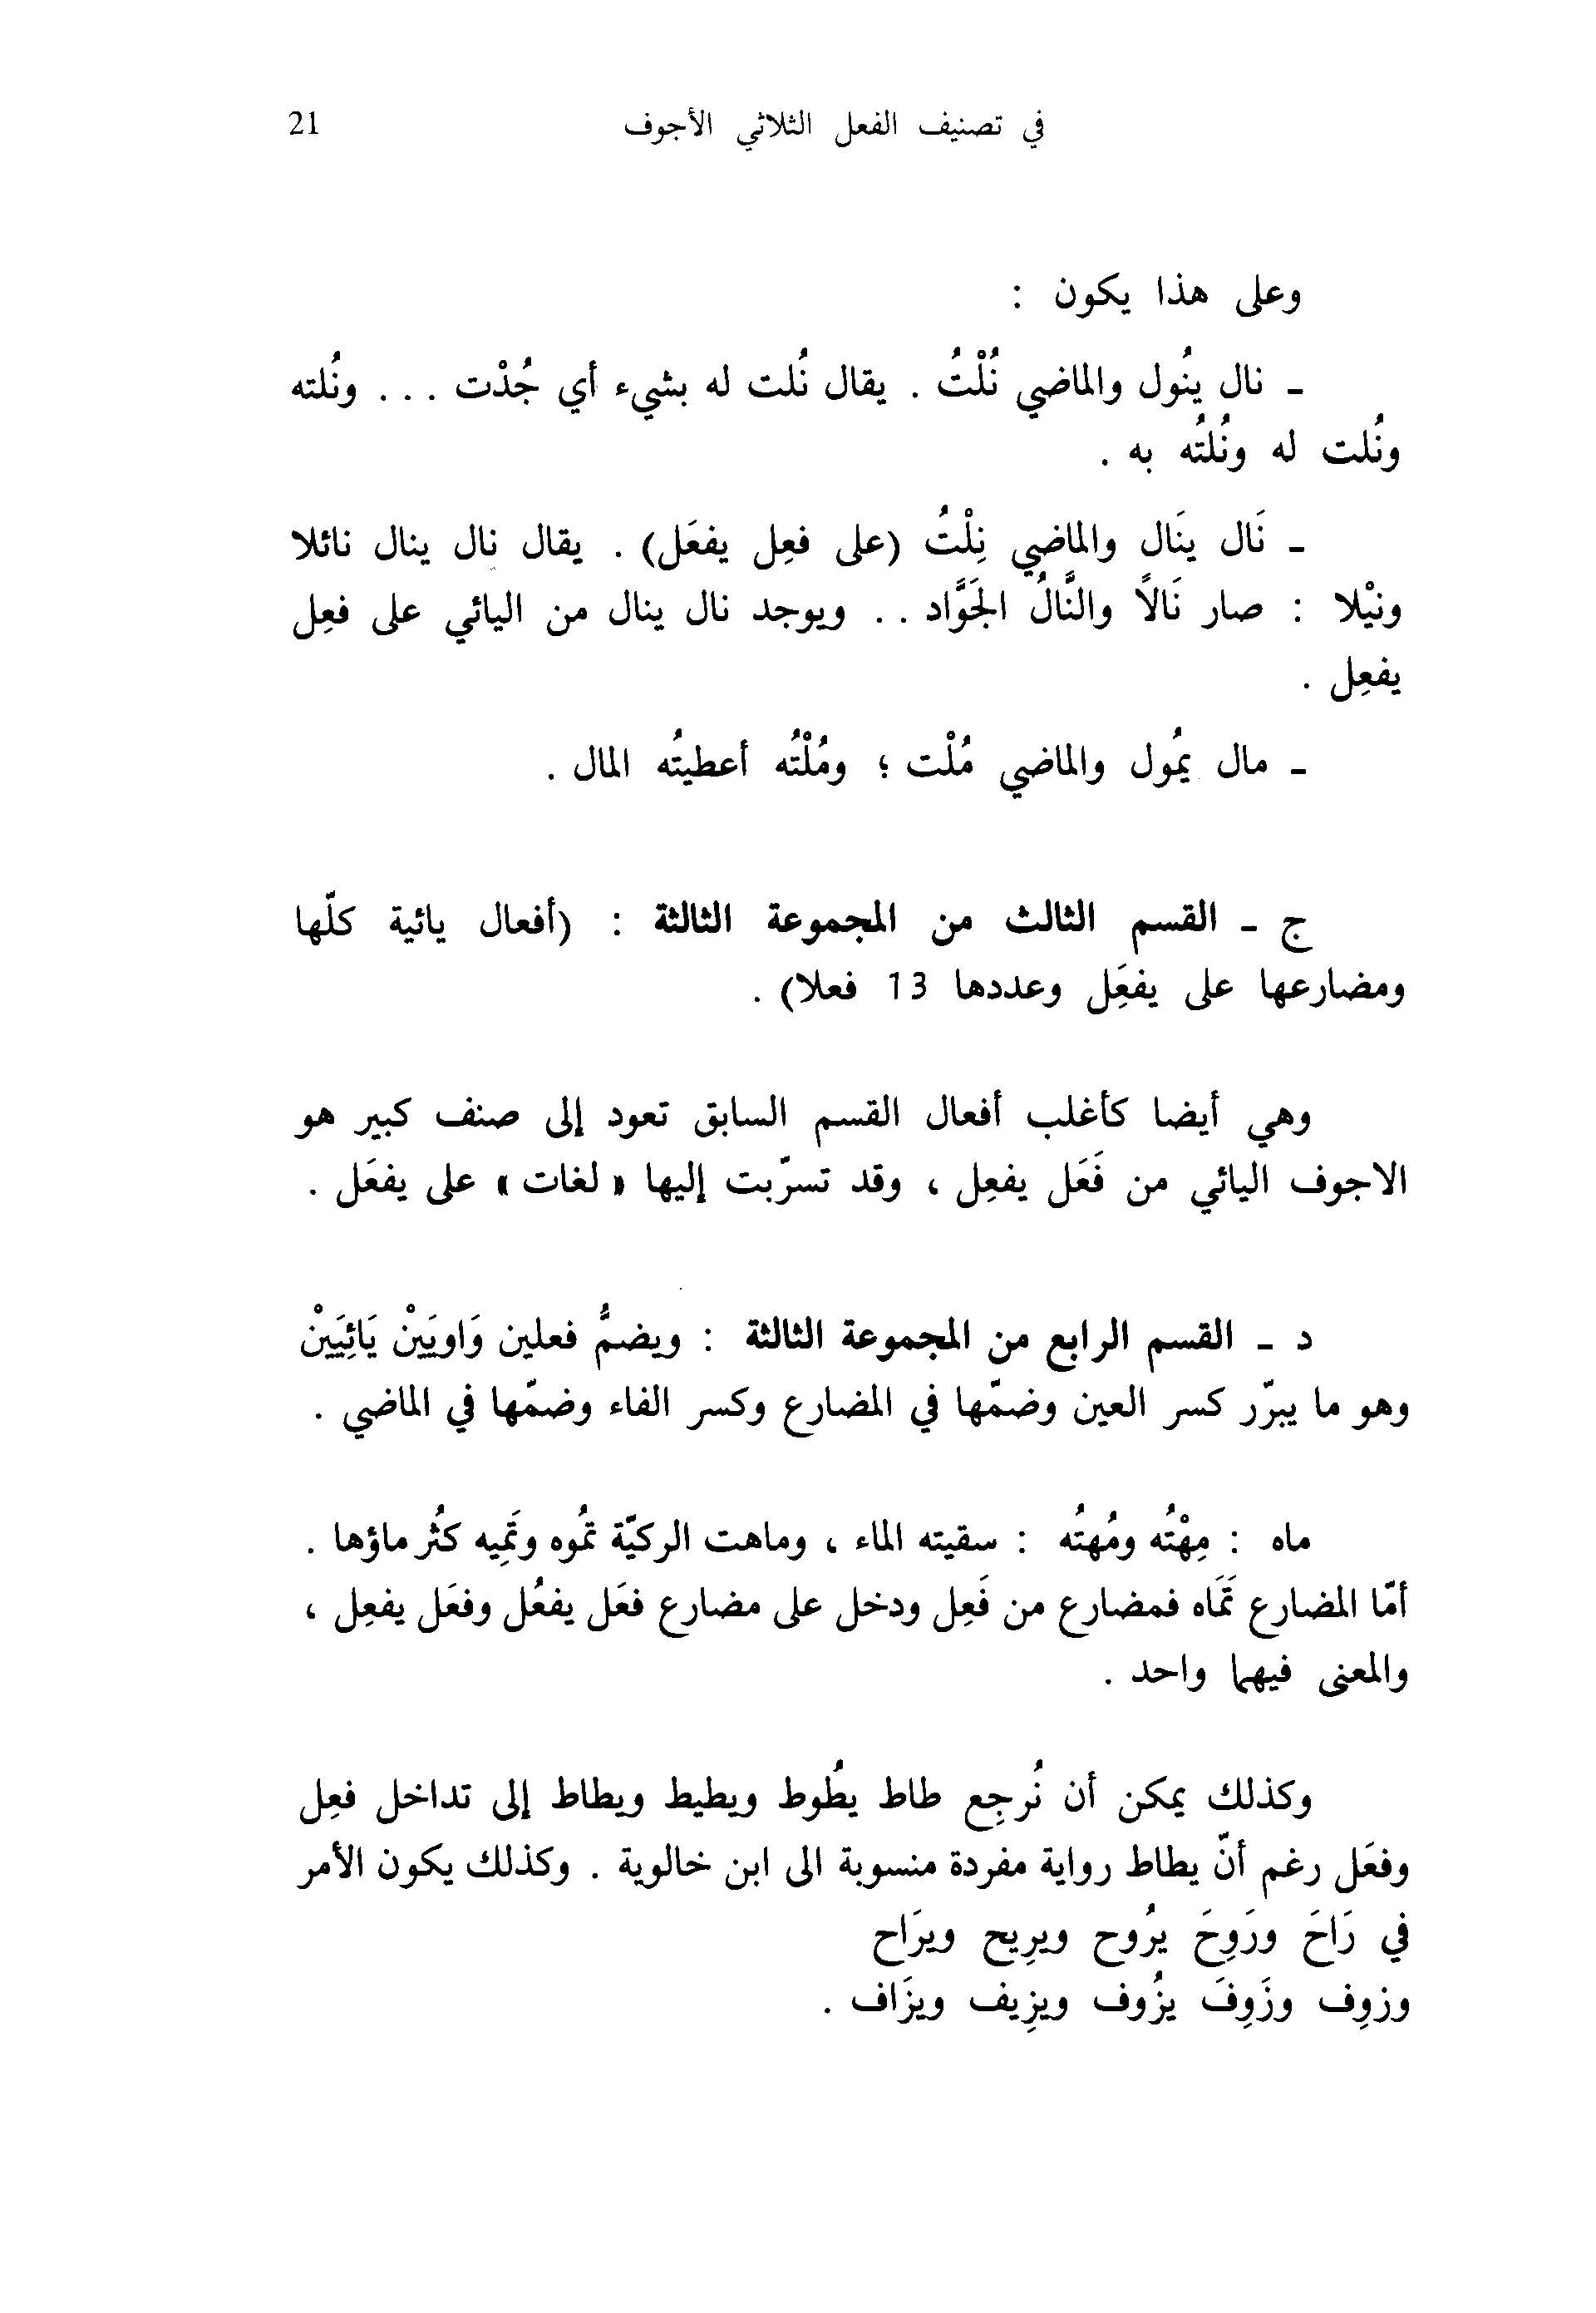 في تصنيف الفعل الثلاثي الأجوف 21
وعلى هذا يكون :
ـ نال ينُول والماضي نُلْتُ . يقال نُلت له بشيء أي جُدْت . . . ونُلته
ونُلت له ونُلتُه به .
ـ نَال ينَال والماضي نِلْتُ (على فعِل يفعَل) . يقال نال ينال نائلا
ونيْلا : صار نَالاً والنَّالُ الجَوَّاد . . ويوجد نال ينال من اليائي على فعِل
يفعِل .
ـ مال يمُول والماضي مُلْت ؛ ومُلْتُه أعطيتُه المال .
ج ـ القسم الثالث من المجموعة الثالثة : (أفعال يائية كلّها
ومضارعها على يفعَِل وعددها 13 فعلا) .
وهي أيضا كأغلب أفعال القسم السابق تعود إلى صنف كبير هو
الاجوف اليائي من فَعَل يفعِل ، وقد تسرّبت إليها « لغات » على يفعَل .
د ـ القسم الرابع من المجموعة الثالثة : ويضمُّ فعلين وَاويَيْن يَائِيَيْن
وهو ما يبرّر كسر العين وضمّها في المضارع وكسر الفاء وضمّها في الماضي .
ماه : مِهْتُه ومُهتُه : سقيته الماء ، وماهت الركيّة تمُوه وتَمِيه كثُر ماؤها .
أمّا المضارع تَمَاه فمضارع من فَعِل ودخل على مضارع فعَل يفعُل وفعَل يفعِل ،
والمعنى فيهما واحد .
وكذلك يمكن أن نُرجِع طاط يطُوط ويطيط ويطاط إلى تداخل فعِل
وفعَل رغم أنّ يطاط رواية مفردة منسوبة الى ابن خالوية . وكذلك يكون الأمر
في رَاحَ ورَوِحَ يرُوح ويرِيح ويرَاح
وزوِف وزَوِفَ يزُوف ويزِيف ويزَاف .